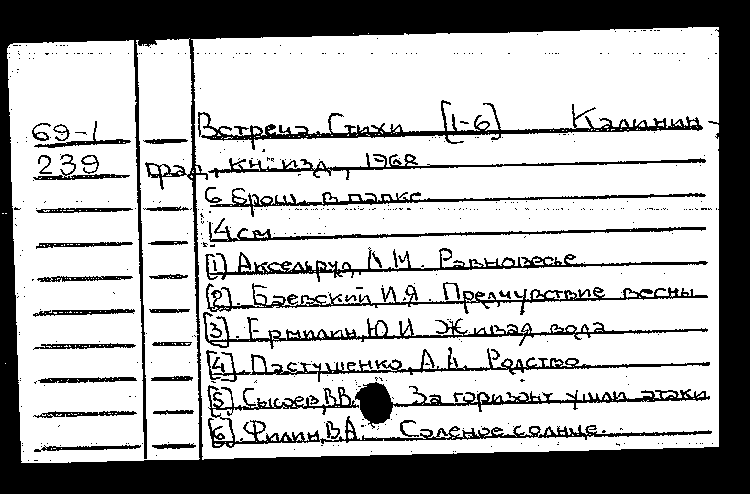 69-1 Встреча. Стихи [1-6] Калинин-
239 град, кн. изд., 1968
6 брош. в папке
14 см
[1] Аксельруд, Л.М. Равновесье
[2]. Баевский, И.Я. Предчувствие весны
[3]. Ермилин, Ю.И. Живая вода
[4]. Пастушенко, А.А. Родство
[5]. Сысоев, В.В. За горизонт ушли атаки
[6]. Филин, В.А. Соленое солнце.